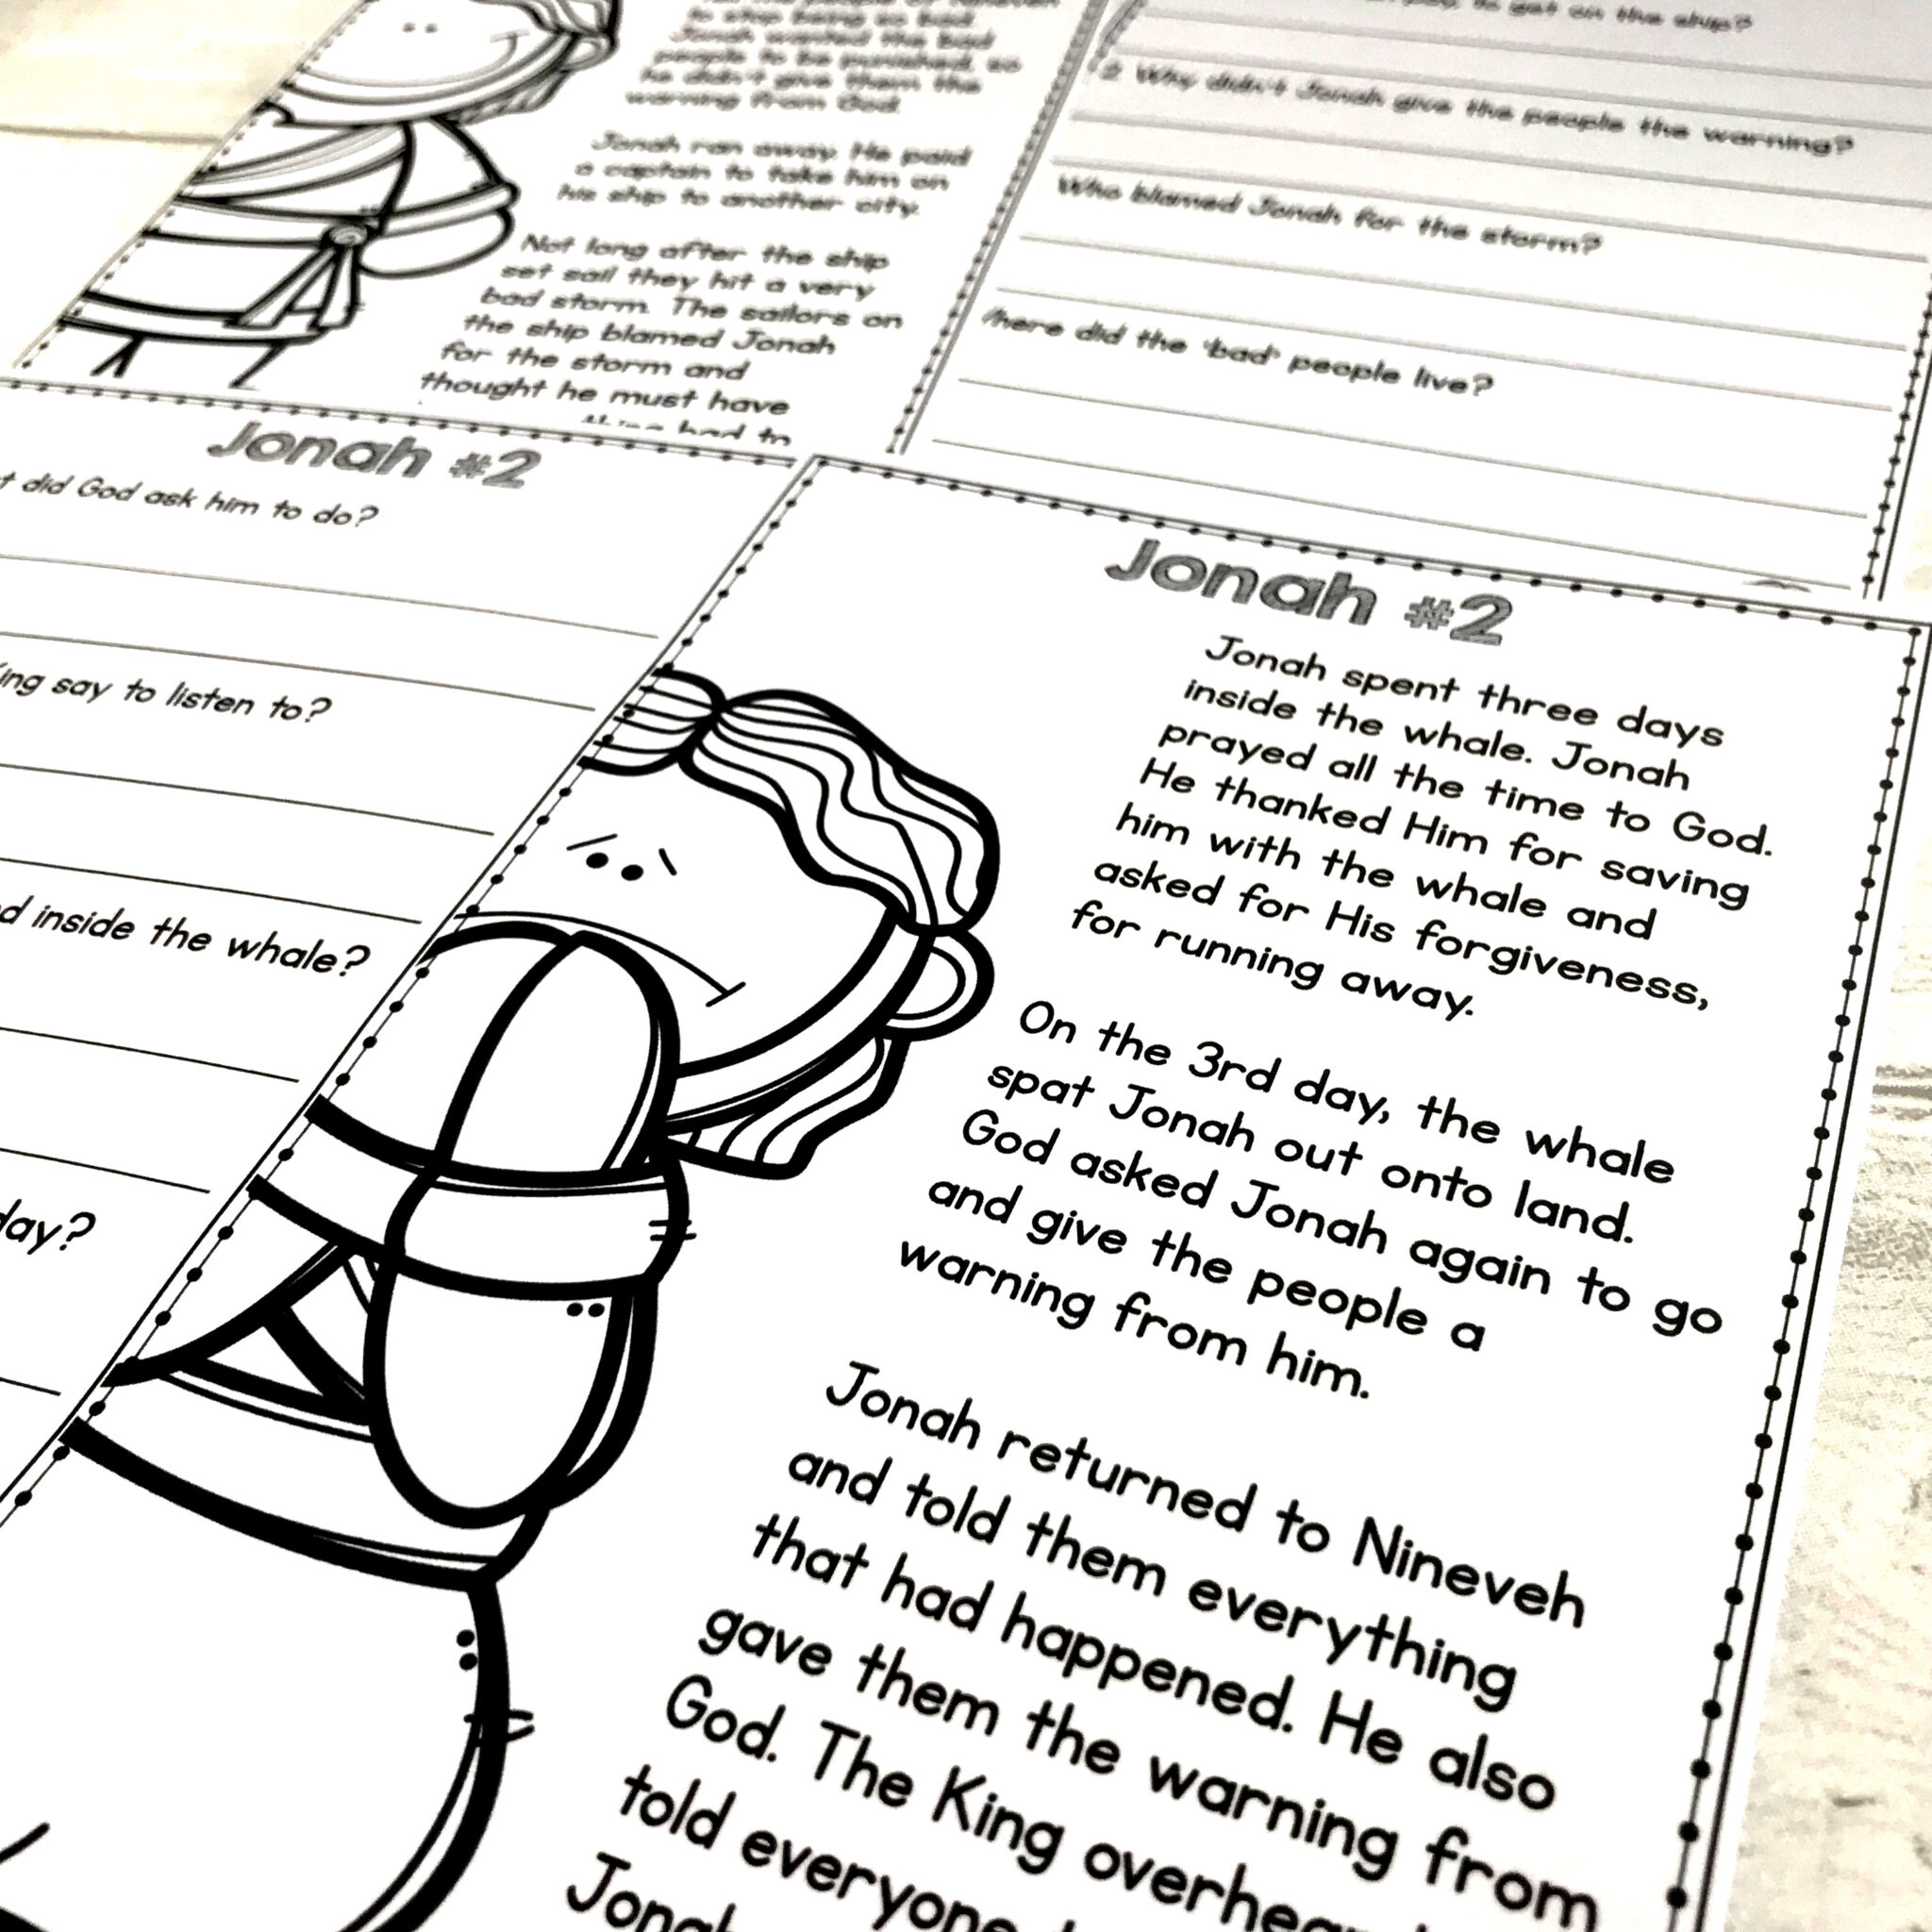 to stop being so bad.
Jonah wanted the bad
people to be punished, so
he didn't give them the
warning from God.
Jonah ran away. He paid
a captain to take him on
his ship to another city.
Not long after the ship
set sail they hit a very
bad storm. The sailors on
the ship blamed Jonah
for the storm and
thought he must have
had to
to get on the ship?
2. Why didn't Jonah give the people the warning?
Who blamed Jonah for the storm?
here did the 'bad' people live?
Jonah #2
t did God ask him to do?
ing say to listen to?
d inside the whale?
day?
Jonah #2
Jonah spent three days
inside the whale. Jonah
prayed all the time to God.
He thanked Him for saving
him with the whale and
asked for His forgiveness,
for running away.
On the 3rd day, the whale
spat Jonah out onto land.
God asked Jonah again to go
and give the people a
warning from him.
Jonah returned to Nineveh
and told them everything
that had happened. He also
gave them the warning from
God. The King overhea
told everyone
Jonah